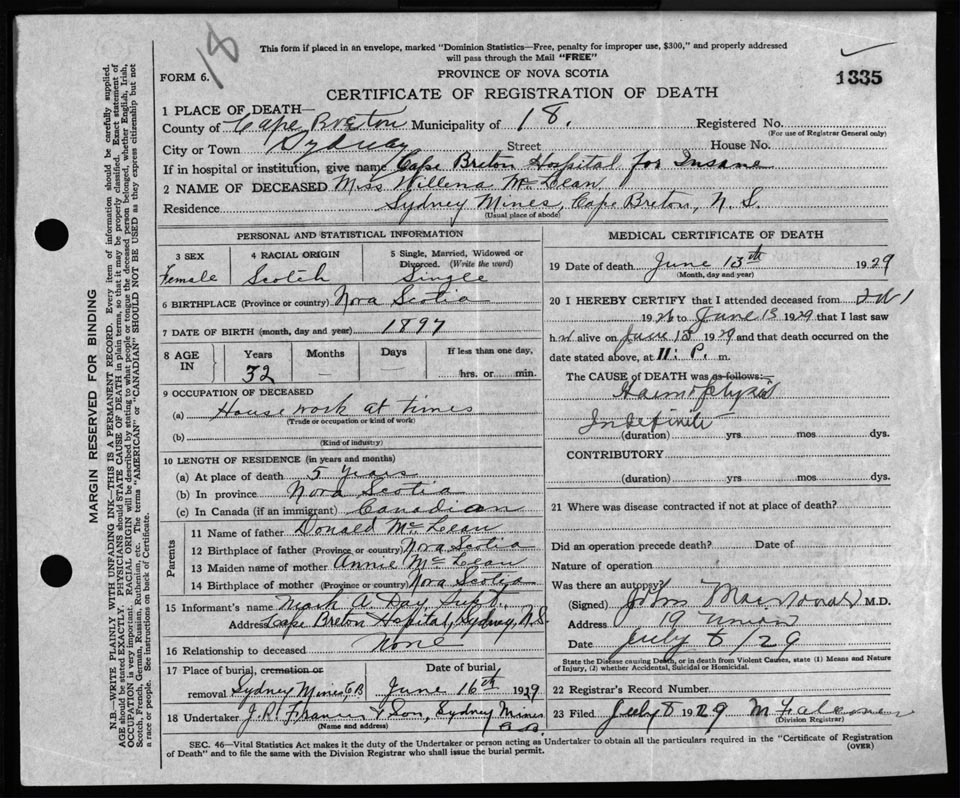 18
This form if placed in an envelope, marked "Dominion Statistics—Free, penalty for improper use, $300," and properly addressed
will pass through the Mail "FREE"
FORM 6.
PROVINCE OF NOVA SCOTIA
1335
CERTIFICATE OF REGISTRATION OF DEATH
1 PLACE OF DEATH—
County of Cape Breton Municipality of 18. Registered No.
(For use of Registrar General only)
City or Town Sydney Street House No.
If in hospital or institution, give name Cape Breton Hospital for Insane
2 NAME OF DECEASED Miss Willena McLean
Residence Sydney Mines, Cape Breton, N. S.
(Usual place of abode)
PERSONAL AND STATISTICAL INFORMATION
3 SEX 4 RACIAL ORIGIN 5 Single, Married, Widowed or
Divorced. (Write the word)
Female Scotch Single
6 BIRTHPLACE (Province or country) Nova Scotia
7 DATE OF BIRTH (month, day and year) 1897
8 AGE IN Years Months Days If less than one day,
32 — — hrs. or min.
9 OCCUPATION OF DECEASED
(a) House work at times
(Trade or occupation or kind of work)
(b)
(Kind of industry)
10 LENGTH OF RESIDENCE (in years and months)
(a) At place of death 5 years
(b) In province Nova Scotia
(c) In Canada (if an immigrant) Canadian
Parents
11 Name of father Donald McLean
12 Birthplace of father (Province or country) Nova Scotia
13 Maiden name of mother Annie McLean
14 Birthplace of mother (Province or country) Nova Scotia
15 Informant's name Mark A. Day, Supt.,
Address Cape Breton Hospital, Sydney, N.S.
16 Relationship to deceased None
17 Place of burial, cremation or Date of burial
removal Sydney Mines, C B June 16th 1929
18 Undertaker J. R. Francis & Son, Sydney Mines
(Name and address) C.B.
MEDICAL CERTIFICATE OF DEATH
19 Date of death June 13th 1929
(Month, day and year)
20 I HEREBY CERTIFY that I attended deceased from
1926 to June 13 1929 that I last saw
h alive on June 13 1929 and that death occurred on the
date stated above, at 11: P. m.
The CAUSE of DEATH was as follows:—
Haemoptysis
Indefinite
(duration) yrs mos dys.
CONTRIBUTORY
(duration) yrs. mos dys.
21 Where was disease contracted if not at place of death?
Did an operation precede death? Date of
Nature of operation
Was there an autopsy?
(Signed) John MacDonald M.D.
Address 19 Union
Date July 8/29
State the Disease causing Death, or in death from Violent Causes, state (1) Means and Nature
of Injury, (2) whether Accidental, Suicidal or Homicidal.
22 Registrar's Record Number
23 Filed July 8 1929 M Falconer
(Division Registrar)
SEC. 46—Vital Statistics Act makes it the duty of the Undertaker or person acting as Undertaker to obtain all the particulars required in the "Certificate of Registration
of Death" and to file the same with the Division Registrar who shall issue the burial permit.
(OVER)
MARGIN RESERVED FOR BINDING
N.B.—WRITE PLAINLY WITH UNFADING INK—THIS IS A PERMANENT RECORD. Every item of information should be carefully supplied.
AGE should be stated EXACTLY. PHYSICIANS should STATE CAUSE OF DEATH in plain terms, so that it may be properly classified. Exact statement of
OCCUPATION is very important. RACIAL ORIGIN will be described by stating to what people or tongue the deceased person belonged, whether English, Irish,
Scotch, French, German, Russian, Ruthenian, etc. The terms "AMERICAN" or "CANADIAN" SHOULD NOT BE USED as they express citizenship but not
a race or people. See instructions on back of Certificate.